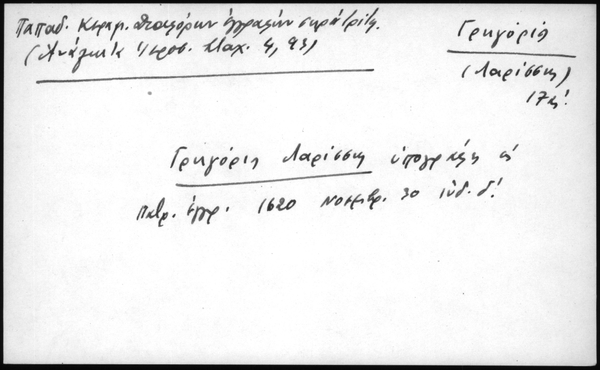 Παπαδ. Κεραμ. Διαφόρων ἐγγράφων σειρὰ τρίτη.
(Ἀνάλεκτα Ἱεροσ. Σταχ. 4, 93)
Γρηγόριος
(Λαρίσσης)
17ος
Γρηγόριος Λαρίσσης ὑπογράφει εἰς
Πατρ. ἔγγρ. 1620 νοεμβρ. 30 ἰνδ. δ΄.